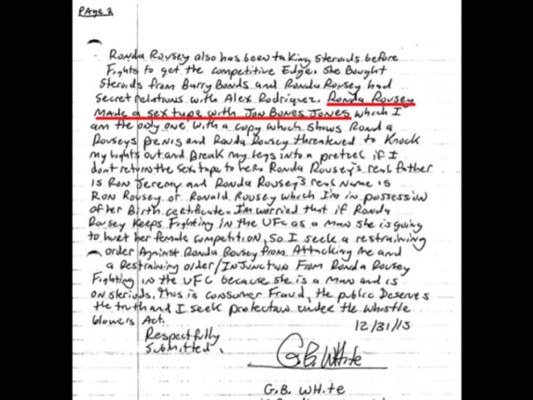 PAge 2
Ronda Rousey also has been taking steroids before
Fights to get the competitive Edge. She Bought
Steroids from Barry Bonds and Ronda Rousey had
secret relations with Alex Rodriquez. Ronda Rousey
made a sex tape with Jon Bones Jones which I
am the only one with a copy which shows Ronda
Rouseys penis and Ronda Rousey threatened to Knock
my lights out and Break my legs into a pretzel if I
dont return the sex tape to her. Ronda Rousey's real father
is Ron Jeremy and Ronda Rousey's real Name is
Ron Rousey or Ronald Rousey which I'm in possession
of her Birth certificate. I'm worried that if Ronda
Rousey Keeps Fighting in the UFC as a man she is going
to hurt her female competition, so I seek a restraining
order Against Ronda Rousey from Attacking me and
a Restraining order/InJunction From Ronda Rousey
Fighting in the UFC because she is a Man and is
on steriods, this is consumer Fraud, the public Deserves
the truth and I seek protection under the whistle
blowers Act.
12/31/15
Respectfully
Submitted,
G.B. White
G.B. White